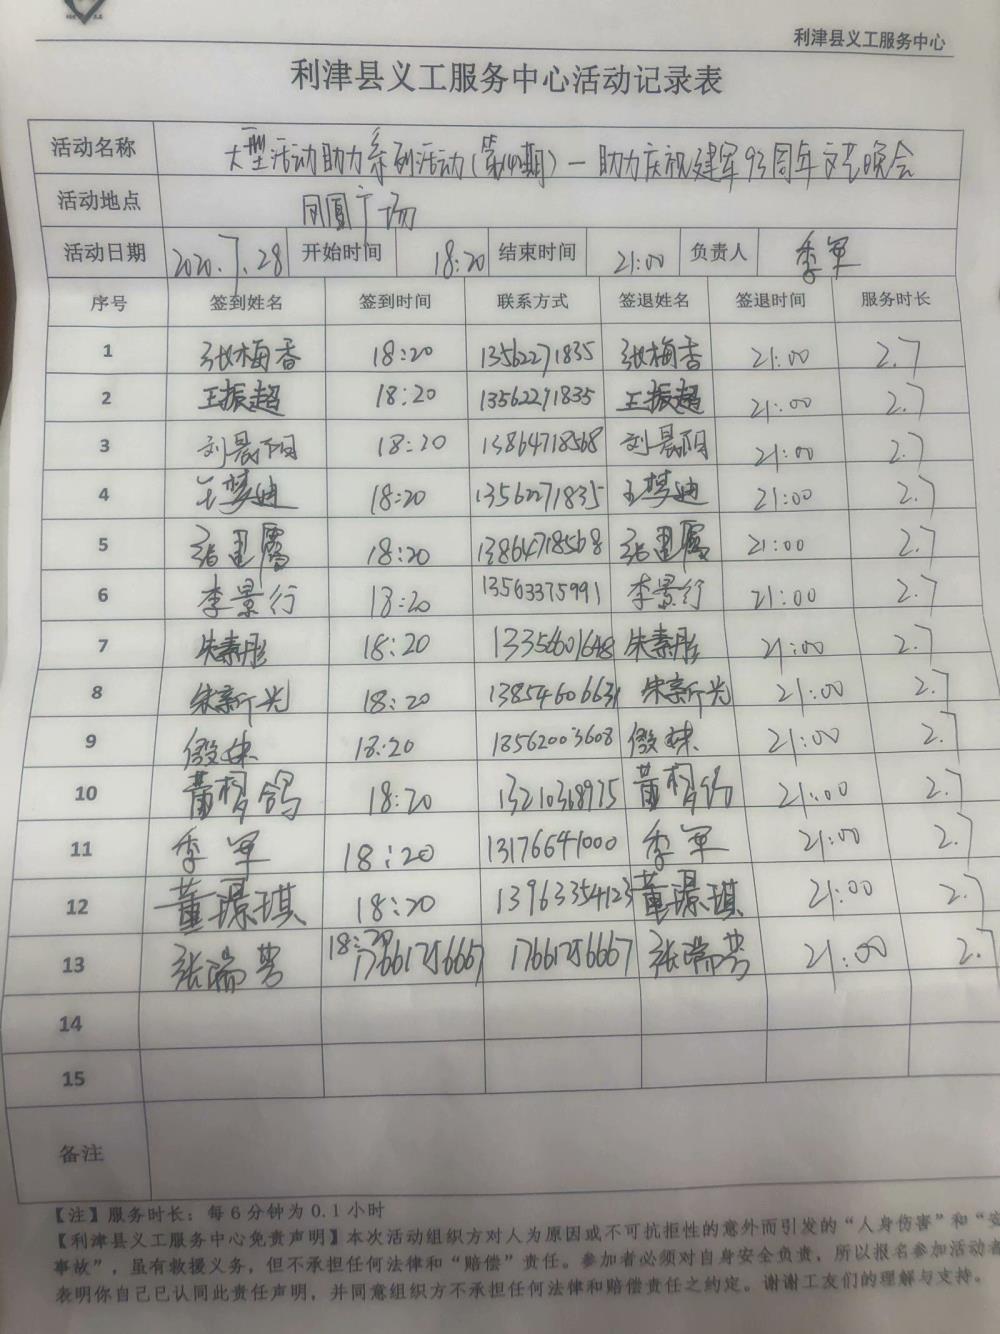 利津县义工服务中心
利津县义工服务中心活动记录表
活动名称 大型活动助力系列活动(第 期)一助力庆祝建军93周年文艺晚会
活动地点 凤凰广场
活动日期 2020.7.28 开始时间 18:20 结束时间 21:00 负责人 季军
序号 签到姓名 签到时间 联系方式 签退姓名 签退时间 服务时长
1 张梅香 18:20 13562271835 张梅香 21:00 2.7
2 王振超 18:20 13562271835 王振超 21:00 2.7
3 刘晨阳 18:20 13864718568 刘晨阳 21:00 2.7
4 王梦迪 18:20 13562271835 王梦迪 21:00 2.7
5 18:20 13864718568 21:00 2.7
6 李景行 18:20 13563375991 李景行 21:00 2.7
7 朱素彤 18:20 13356601648 朱素彤 21:00 2.7
8 朱新光 18:20 13854606631 朱新光 21:00 2.7
9 18:20 18562003608 21:00 2.7
10 18:20 13210368975 21:00 2.7
11 季军 18:20 13176641000 季军 21:00 2.7
12 董璟琪 18:20 13963354123 董璟琪 21:00 2.7
13 张瑞芳 18:20 17661756667 17661756667 张瑞芳 21:00 2.7
14
15
备注
【注】服务时长：每6分钟为0.1小时
【利津县义工服务中心免责声明】本次活动组织方对人为原因或不可抗拒性的意外而引发的“人身伤害”和“
事故”，虽有救援义务，但不承担任何法律和“赔偿”责任。参加者必须对自身安全负责，所以报名参加活动者
表明你自己已认同此责任声明，并同意组织方不承担任何法律和赔偿责任之约定。谢谢工友们的理解与支持。